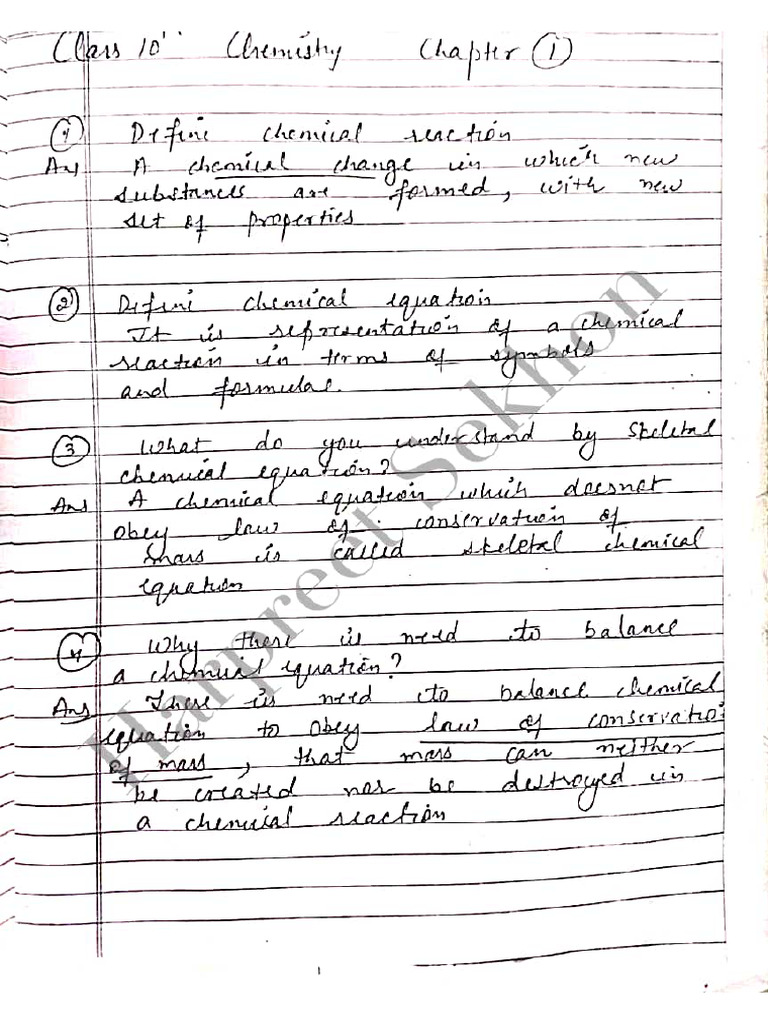 Class 10th Chemistry Chapter 1
1 Define chemical reaction
Ans A chemical change in which new
substances are formed, with new
set of properties
2 Define chemical equation
It is representation of a chemical
reaction in terms of symbols
and formulae.
3 What do you understand by skeletal
chemical equation?
Ans A chemical equation which doesnot
obey law of conservation of
mass is called skeletal chemical
equation
4 Why there is need to balance
a chemical equation?
Ans There is need to balance chemical
equation to obey law of conservatio
of mass, that mass can neither
be created nor be destroyed in
a chemical reaction
Harpreet Sekhon
1